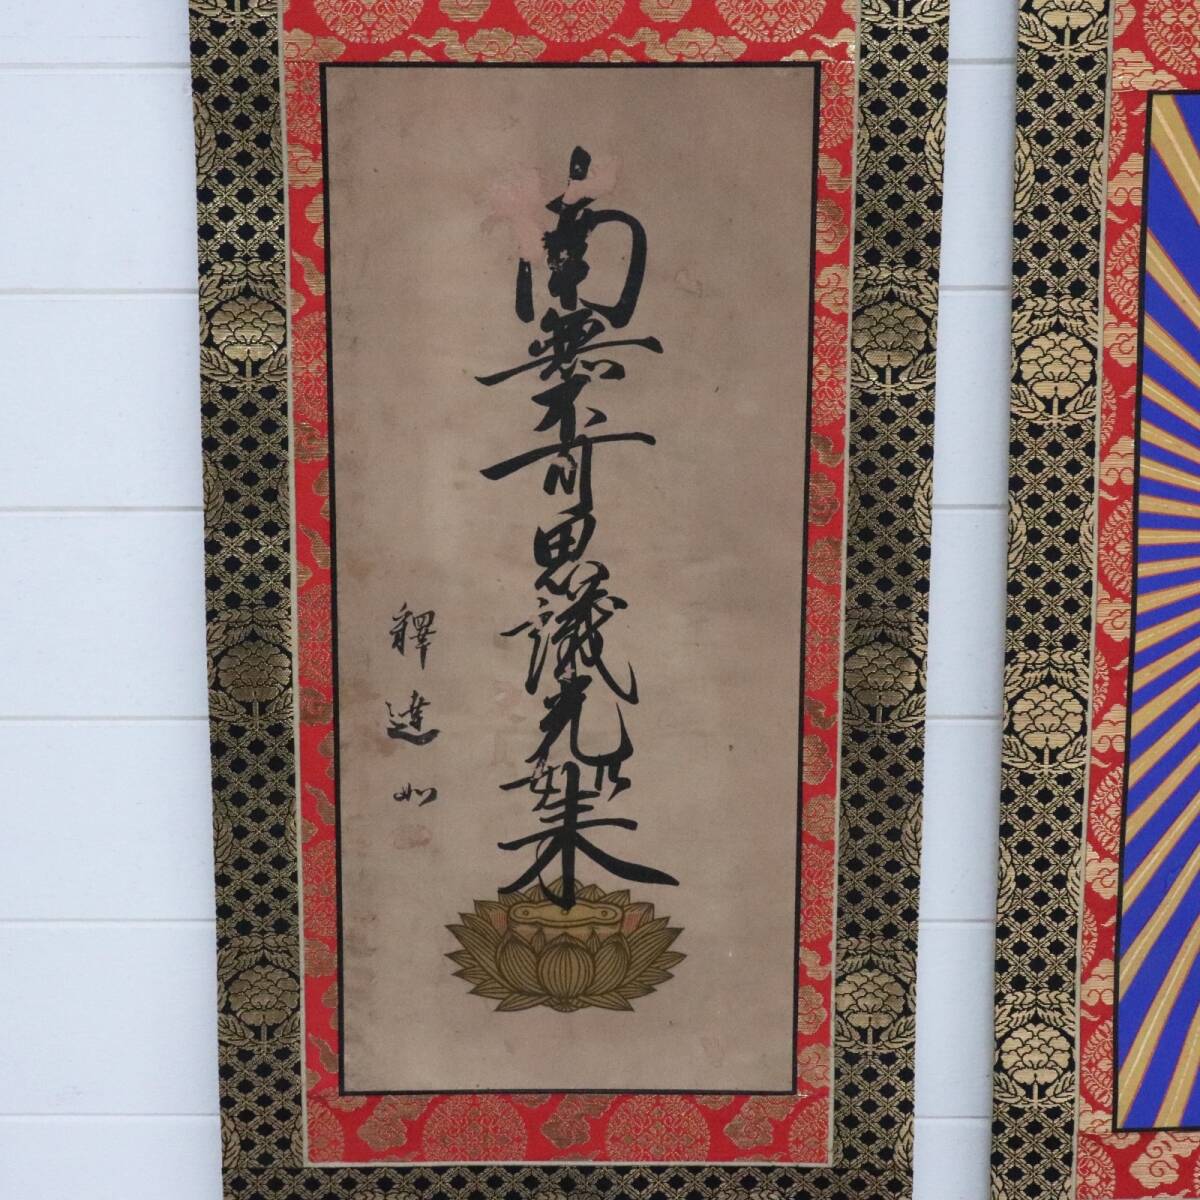 南無不可思議光如来
釋達如